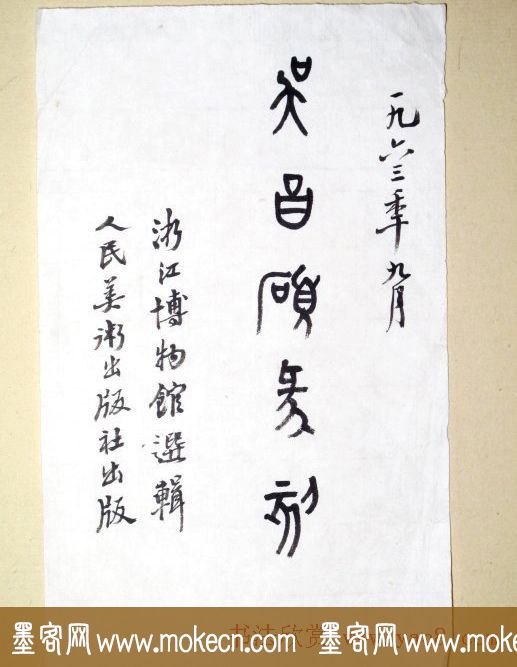 一九六三年九月
吳昌碩篆刻
浙江博物館選輯
人民美術出版社出版
书法欣赏
墨客网 www.mokecn.com 墨客网 www.mokecn.com